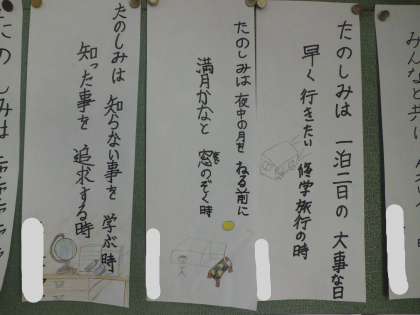 みんなと共に
たのしみは 一泊二日の 大事な日
早く行きたい 修学旅行の時
たのしみは 夜中の月を ねる前に
満月かなと 窓のぞく時
たのしみは 知らない事を 学ぶ時
知った事を 追求する時
たのしみは